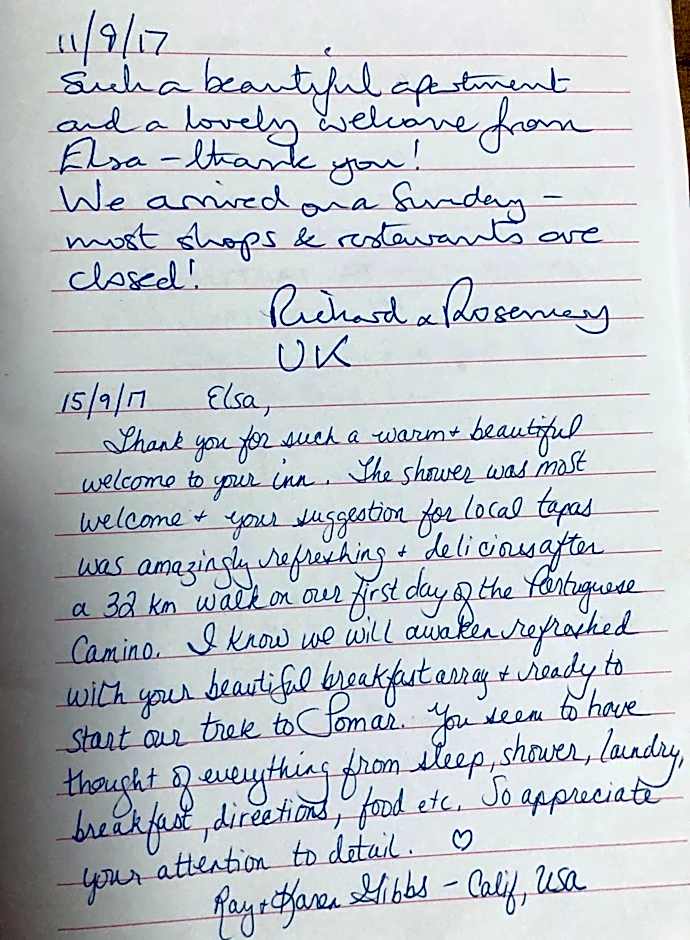 11/9/17
Such a beautiful apartment
and a lovely welcome from
Elsa - thank you!
We arrived on a Sunday -
most shops & restaurants are
closed!
Richard & Rosemary
UK
15/9/17 Elsa,
Thank you for such a warm + beautiful
welcome to your inn. The shower was most
welcome + your suggestion for local tapas
was amazingly refreshing + delicious after
a 32 km walk on our first day of the Portuguese
Camino. I know we will awaken refreshed
with your beautiful breakfast array + ready to
start our trek to Tomar. You seem to have
thought of everything from sleep, shower, laundry,
breakfast, directions, food etc. So appreciate
your attention to detail. ♡
Ray + Karen Gibbs - Calif, USA